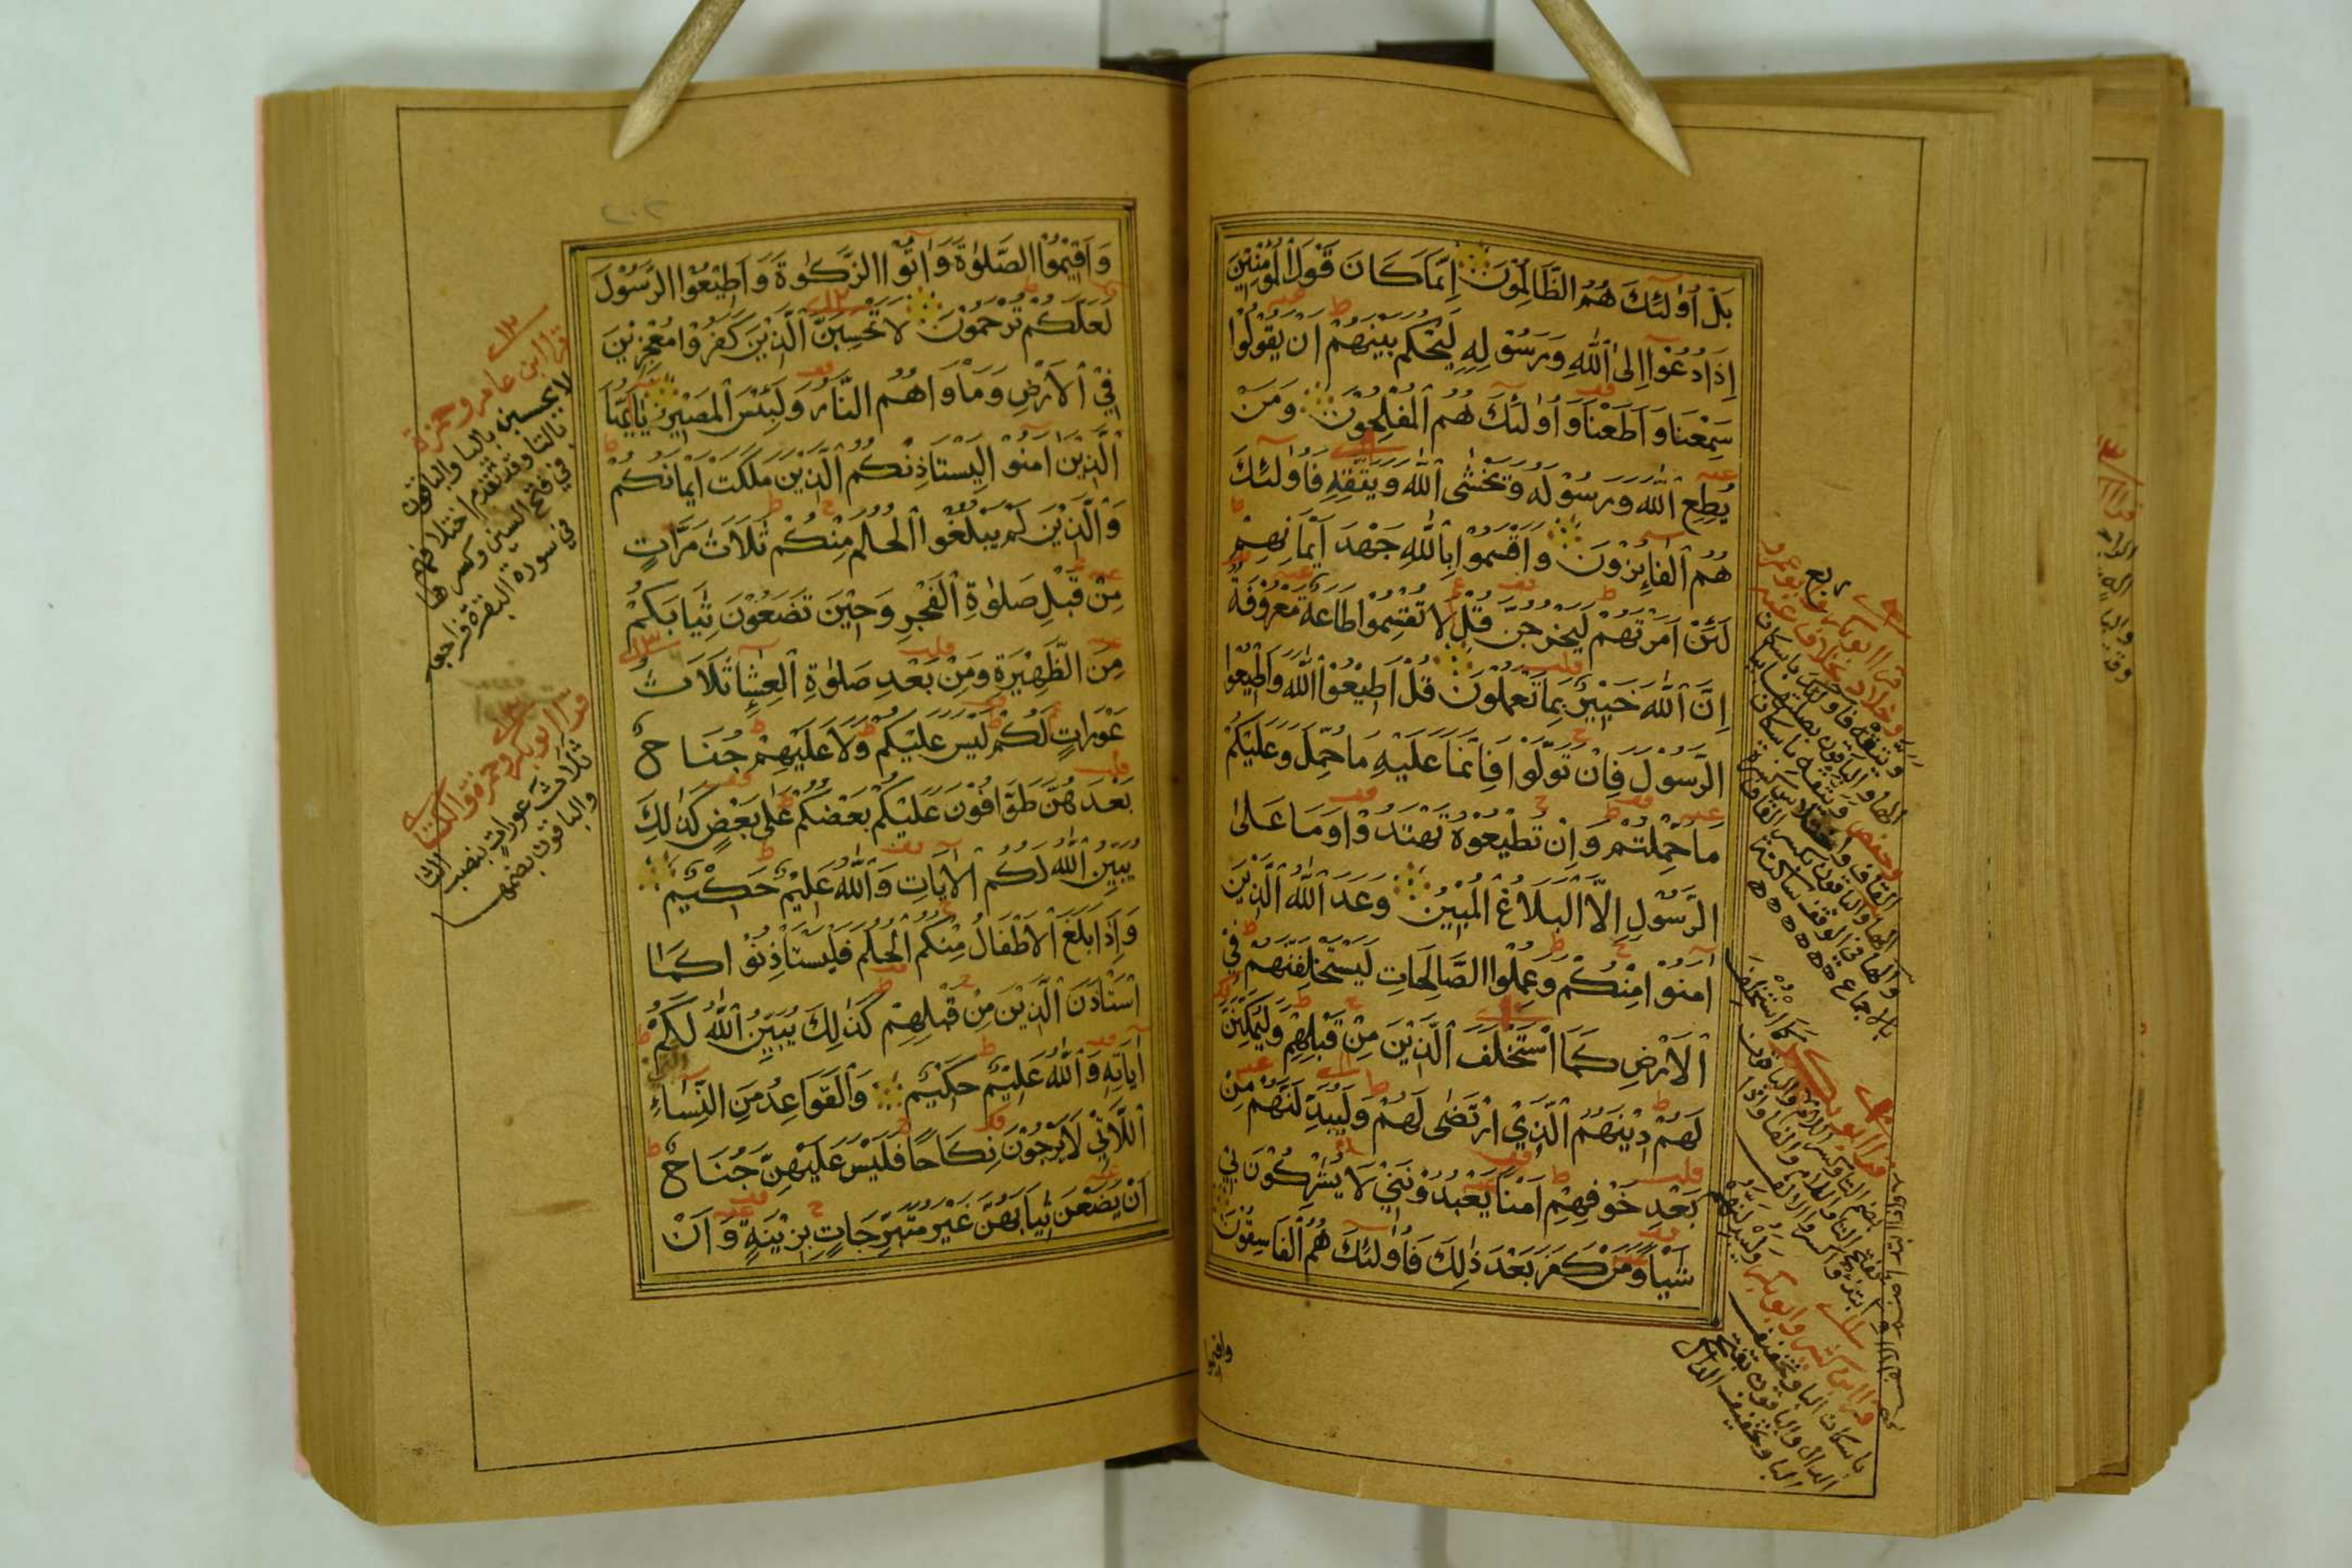 بَلْ أُولَٰئِكَ هُمُ الظَّالِمُونَ إِنَّمَا كَانَ قَوْلَ الْمُؤْمِنِينَ
إِذَا دُعُوا إِلَى اللَّهِ وَرَسُولِهِ لِيَحْكُمَ بَيْنَهُمْ أَنْ يَقُولُوا
سَمِعْنَا وَأَطَعْنَا وَأُولَٰئِكَ هُمُ الْمُفْلِحُونَ وَمَنْ
يُطِعِ اللَّهَ وَرَسُولَهُ وَيَخْشَى اللَّهَ وَيَتَّقْهِ فَأُولَٰئِكَ
هُمُ الْفَائِزُونَ وَأَقْسَمُوا بِاللَّهِ جَهْدَ أَيْمَانِهِمْ
لَئِنْ أَمَرْتَهُمْ لَيَخْرُجُنَّ قُلْ لَا تُقْسِمُوا طَاعَةٌ مَعْرُوفَةٌ
إِنَّ اللَّهَ خَبِيرٌ بِمَا تَعْمَلُونَ قُلْ أَطِيعُوا اللَّهَ وَأَطِيعُوا
الرَّسُولَ فَإِنْ تَوَلَّوْا فَإِنَّمَا عَلَيْهِ مَا حُمِّلَ وَعَلَيْكُمْ
مَا حُمِّلْتُمْ وَإِنْ تُطِيعُوهُ تَهْتَدُوا وَمَا عَلَى
الرَّسُولِ إِلَّا الْبَلَاغُ الْمُبِينُ وَعَدَ اللَّهُ الَّذِينَ
آمَنُوا مِنْكُمْ وَعَمِلُوا الصَّالِحَاتِ لَيَسْتَخْلِفَنَّهُمْ فِي
الْأَرْضِ كَمَا اسْتَخْلَفَ الَّذِينَ مِنْ قَبْلِهِمْ وَلَيُمَكِّنَنَّ
لَهُمْ دِينَهُمُ الَّذِي ارْتَضَى لَهُمْ وَلَيُبَدِّلَنَّهُمْ مِنْ
بَعْدِ خَوْفِهِمْ أَمْنًا يَعْبُدُونَنِي لَا يُشْرِكُونَ بِي
شَيْئًا وَمَنْ كَفَرَ بَعْدَ ذَٰلِكَ فَأُولَٰئِكَ هُمُ الْفَاسِقُونَ
واقيموا
ربع
٢٠٢
وَأَقِيمُوا الصَّلَوٰةَ وَآتُوا الزَّكَوٰةَ وَأَطِيعُوا الرَّسُولَ
لَعَلَّكُمْ تُرْحَمُونَ لَا تَحْسَبَنَّ الَّذِينَ كَفَرُوا مُعْجِزِينَ
فِي الْأَرْضِ وَمَأْوَاهُمُ النَّارُ وَلَبِئْسَ الْمَصِيرُ يَا أَيُّهَا
الَّذِينَ آمَنُوا لِيَسْتَأْذِنْكُمُ الَّذِينَ مَلَكَتْ أَيْمَانُكُمْ
وَالَّذِينَ لَمْ يَبْلُغُوا الْحُلُمَ مِنْكُمْ ثَلَاثَ مَرَّاتٍ
مِنْ قَبْلِ صَلَوٰةِ الْفَجْرِ وَحِينَ تَضَعُونَ ثِيَابَكُمْ
مِنَ الظَّهِيرَةِ وَمِنْ بَعْدِ صَلَوٰةِ الْعِشَاءِ ثَلَاثُ
عَوْرَاتٍ لَكُمْ لَيْسَ عَلَيْكُمْ وَلَا عَلَيْهِمْ جُنَاحٌ
بَعْدَهُنَّ طَوَّافُونَ عَلَيْكُمْ بَعْضُكُمْ عَلَى بَعْضٍ كَذَٰلِكَ
يُبَيِّنُ اللَّهُ لَكُمُ الْآيَاتِ وَاللَّهُ عَلِيمٌ حَكِيمٌ
وَإِذَا بَلَغَ الْأَطْفَالُ مِنْكُمُ الْحُلُمَ فَلْيَسْتَأْذِنُوا كَمَا
اسْتَأْذَنَ الَّذِينَ مِنْ قَبْلِهِمْ كَذَٰلِكَ يُبَيِّنُ اللَّهُ لَكُمْ
آيَاتِهِ وَاللَّهُ عَلِيمٌ حَكِيمٌ وَالْقَوَاعِدُ مِنَ النِّسَاءِ
اللَّاتِي لَا يَرْجُونَ نِكَاحًا فَلَيْسَ عَلَيْهِنَّ جُنَاحٌ
أَنْ يَضَعْنَ ثِيَابَهُنَّ غَيْرَ مُتَبَرِّجَاتٍ بِزِينَةٍ وَأَنْ
قرا ابن عامر وحمزة
لا يحسبن باليا والباقون
بالتا وقد تقدم اختلافهم
في فتح السين وكسرها
في سورة البقرة فراجعه
قرا ابو بكر وحمزة والكسائي
ثلاث عورات بنصب الثا
والباقون بضمها